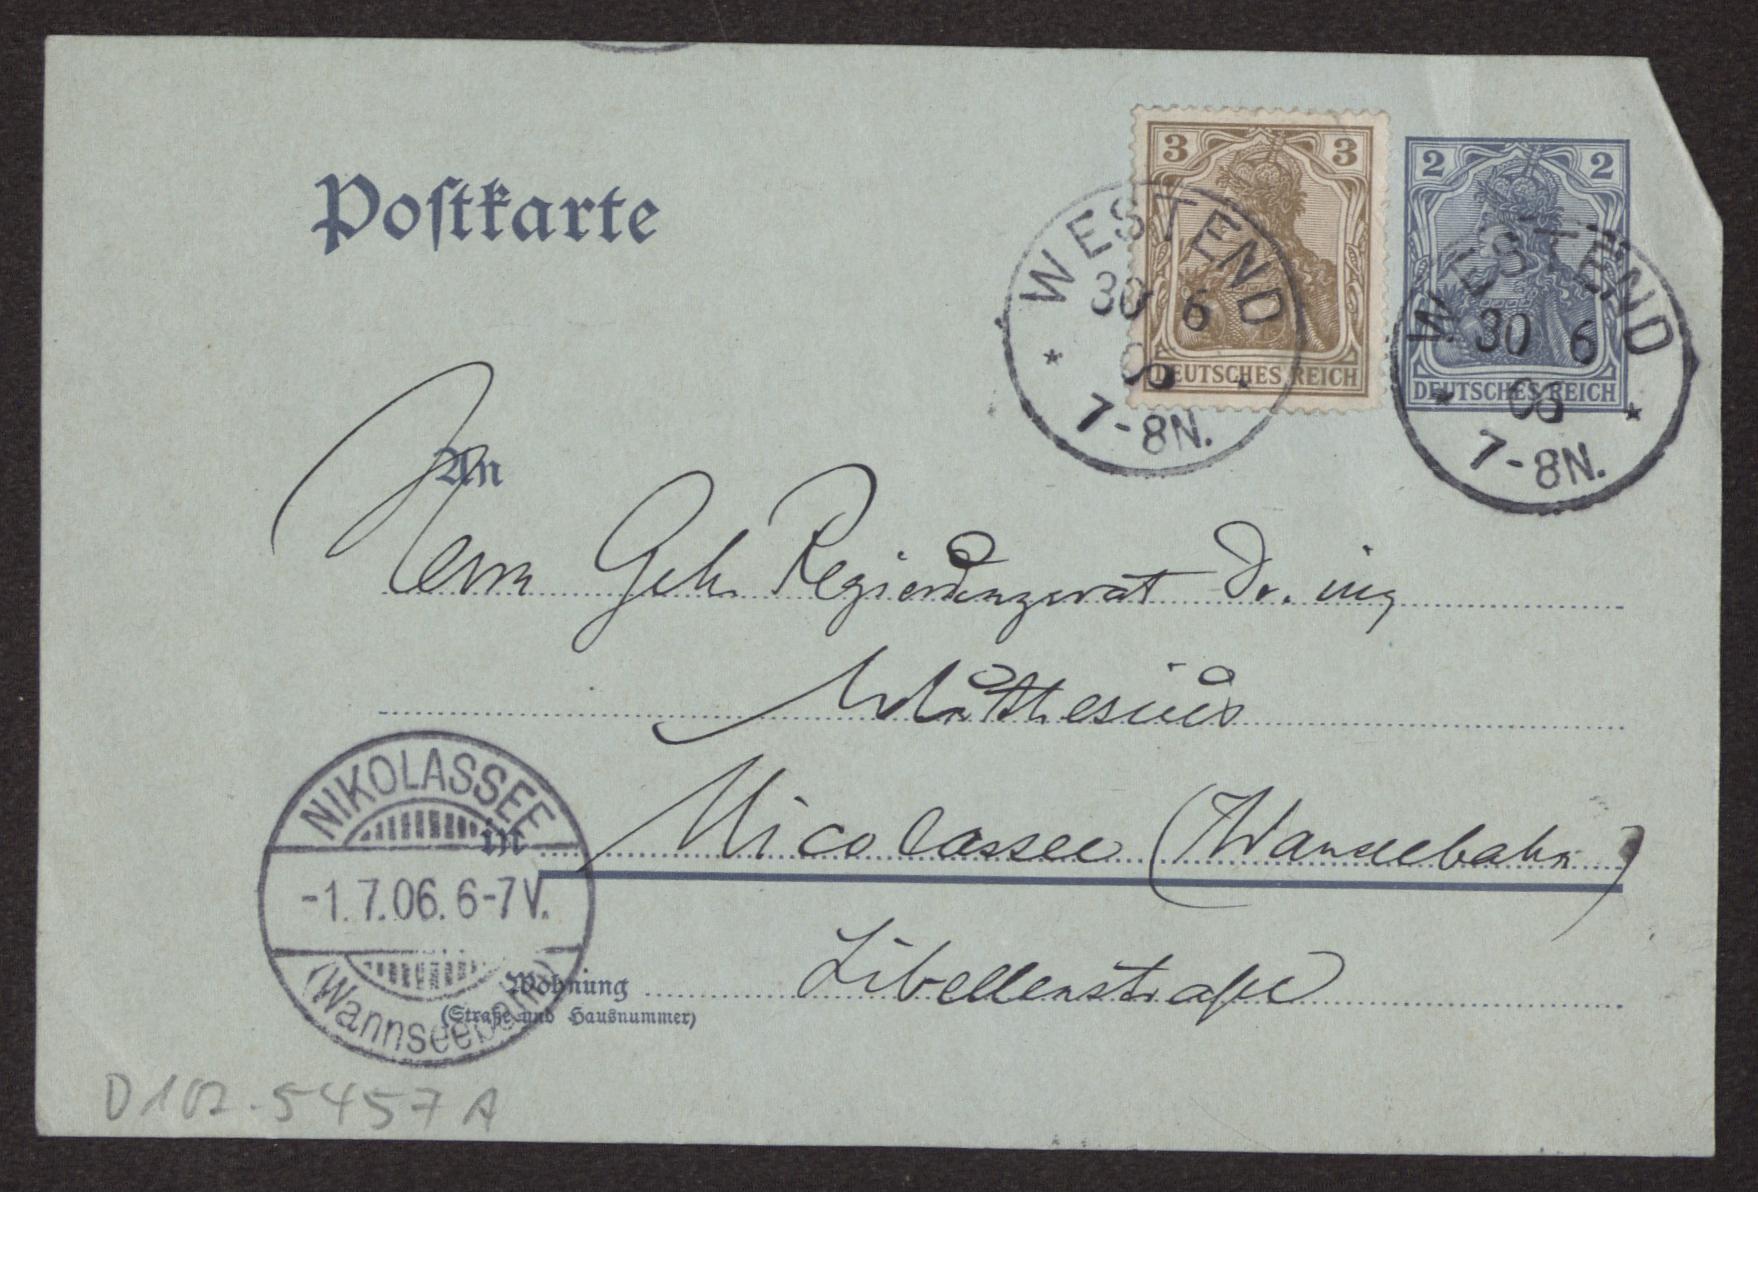 Postkarte
3 3
DEUTSCHES REICH
2 2
DEUTSCHES REICH
WESTEND
30 6
06
7-8N.
WESTEND
30 6
06
7-8N.
An
Herrn Geh. Regierungsrat Dr. ing
Muthesius
in Nicolassee (Wanseebahn)
Wohnung Libellenstraße
(Straße und Hausnummer)
NIKOLASSEE
-1.7.06. 6-7V.
(Wannseebahn)
D102-5457A